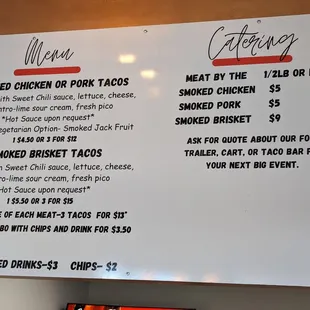 Menu
ED CHICKEN OR PORK TACOS
ith Sweet Chili sauce, lettuce, cheese,
tro-lime sour cream, fresh pico
*Hot Sauce upon request*
egetarian Option- Smoked Jack Fruit
1 $4.50 OR 3 FOR $12
MOKED BRISKET TACOS
h Sweet Chili sauce, lettuce, cheese,
ro-lime sour cream, fresh pico
Hot Sauce upon request*
1 $5.50 OR 3 FOR $15
E OF EACH MEAT-3 TACOS FOR $13*
BO WITH CHIPS AND DRINK FOR $3.50
ED DRINKS-$3 CHIPS- $2
Catering
MEAT BY THE 1/2LB OR
SMOKED CHICKEN $5
SMOKED PORK $5
SMOKED BRISKET $9
ASK FOR QUOTE ABOUT OUR FO
TRAILER, CART, OR TACO BAR F
YOUR NEXT BIG EVENT.